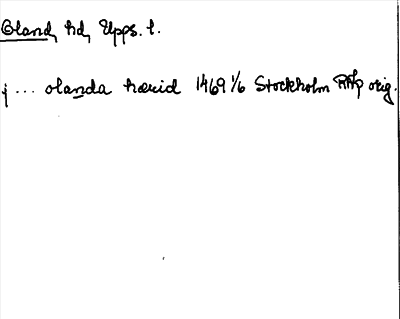 Oland, hd, Upps. l.
j ... olanda hærid 1469 1/6 Stockholm RAp orig.